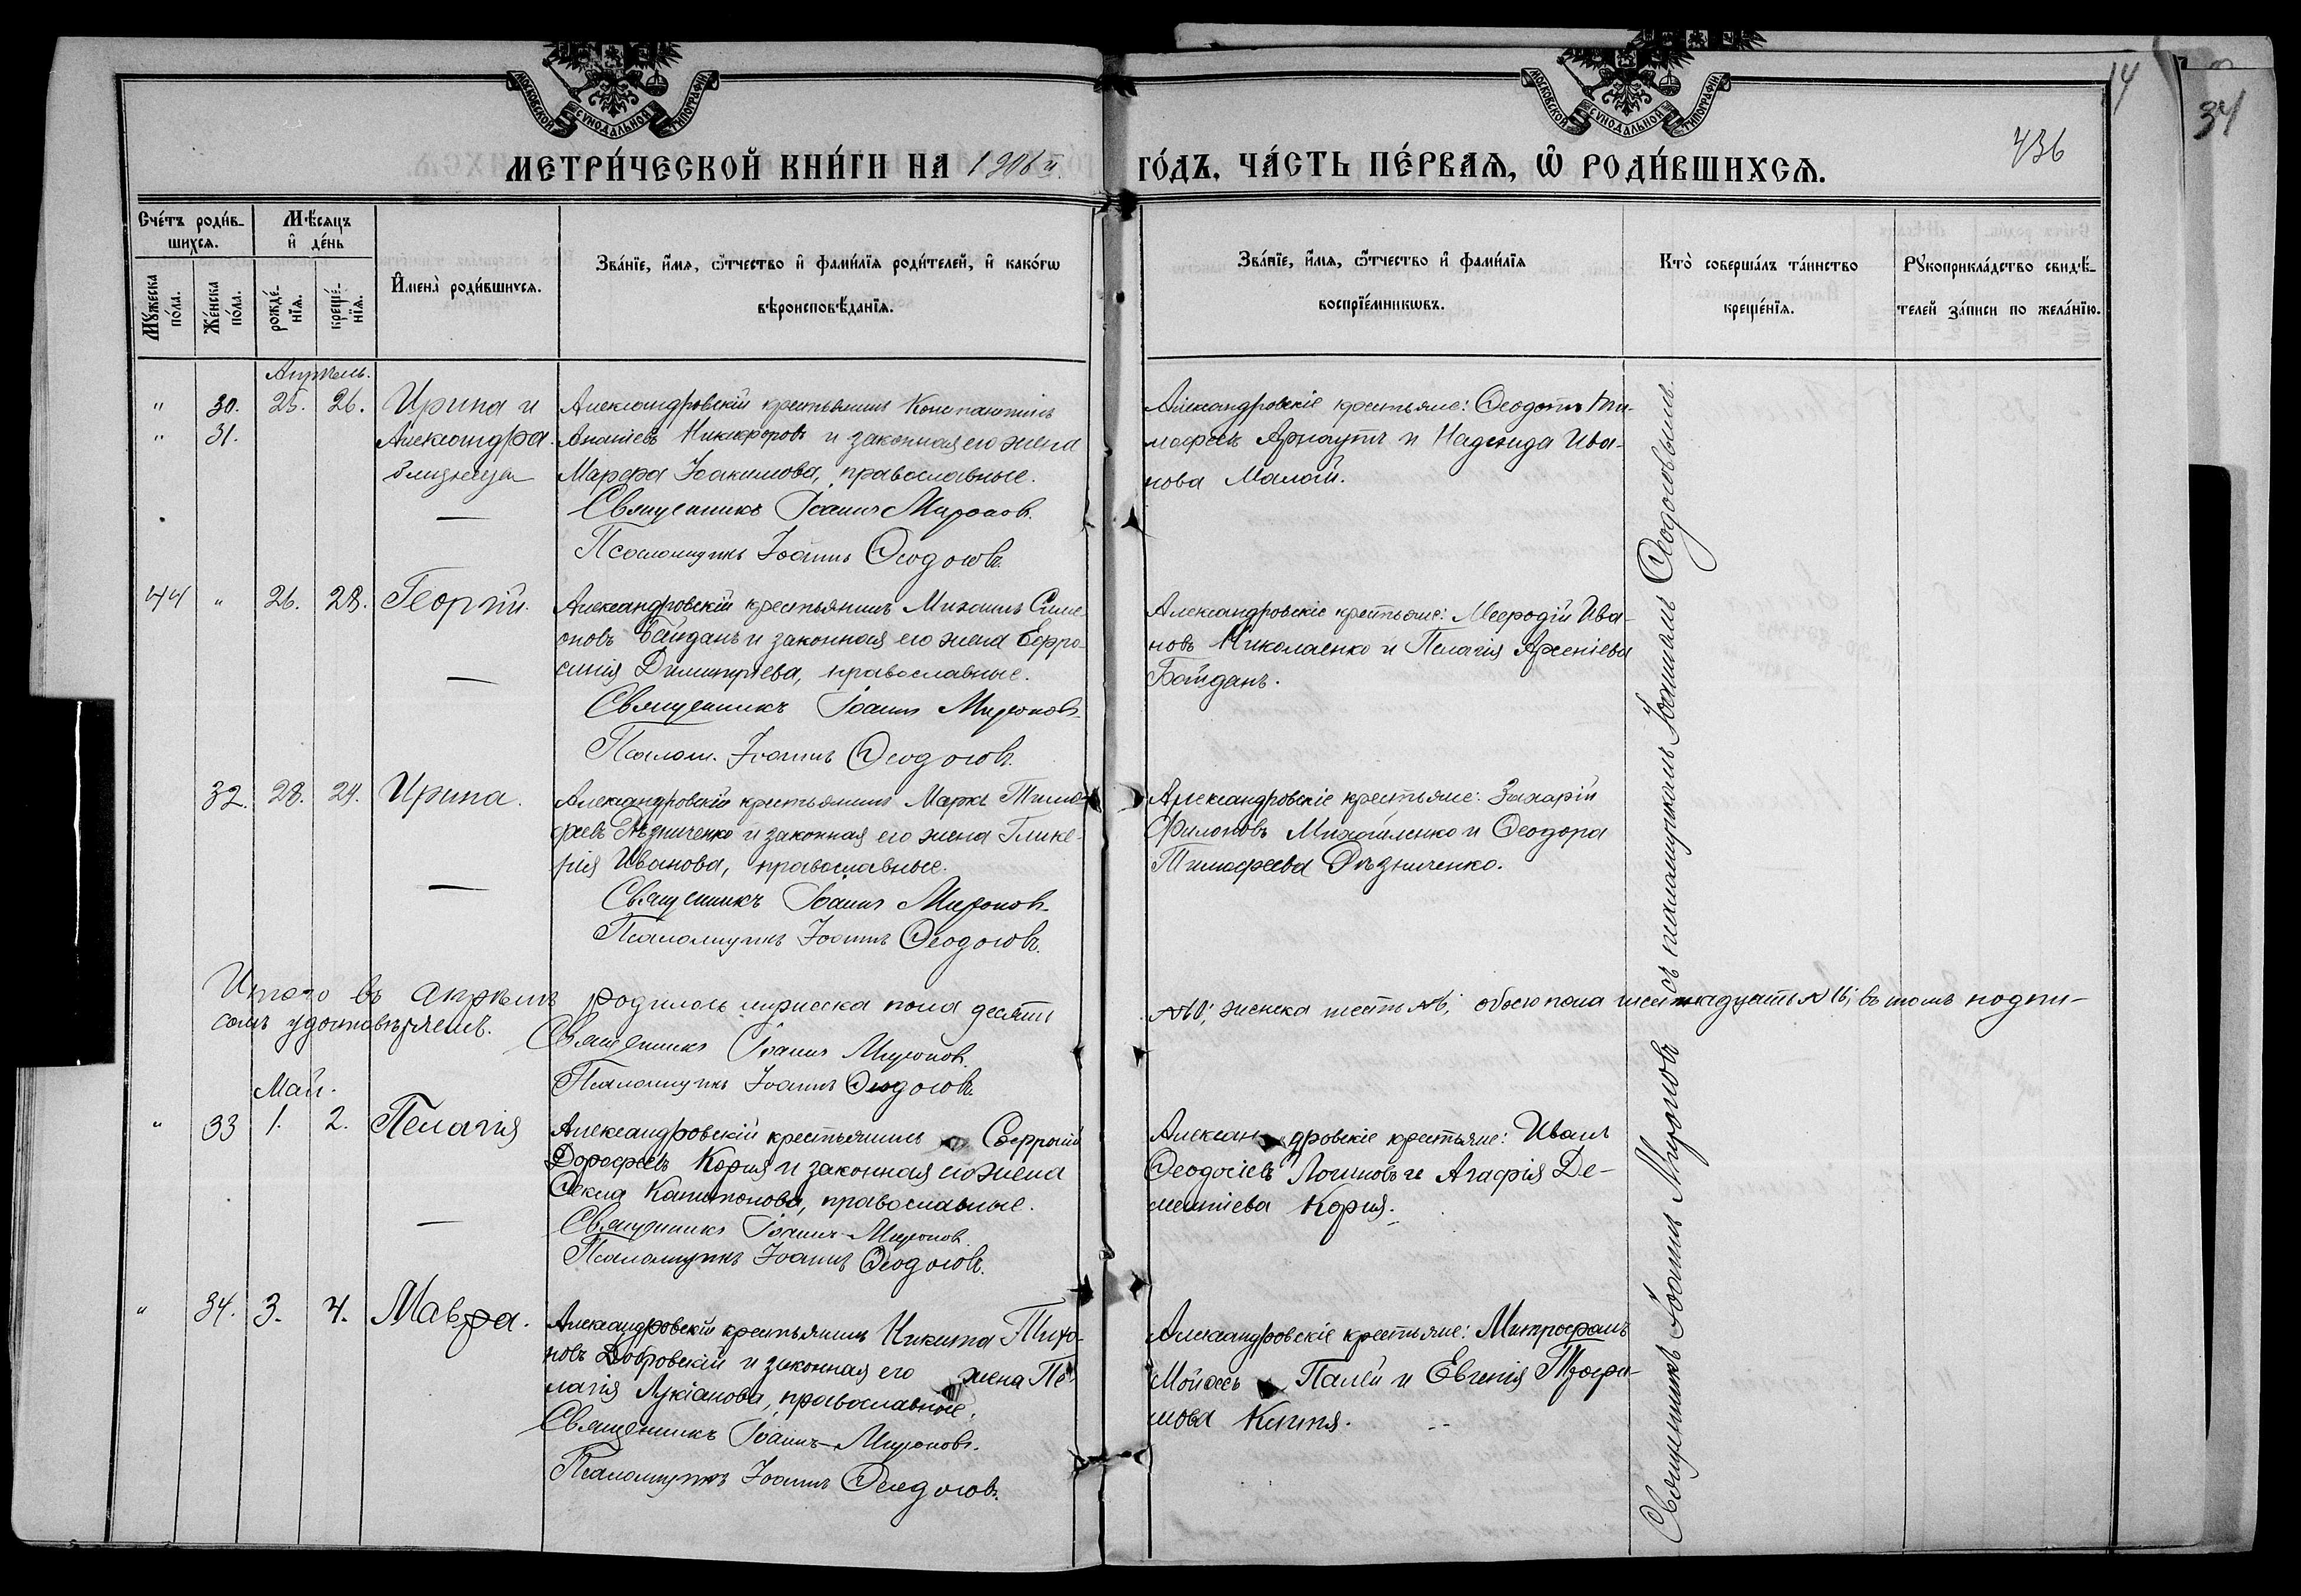 МОСКОВСКОЙ СѴНОДАЛЬНОЙ ТИПОГРАФІИ
МОСКОВСКОЙ СѴНОДАЛЬНОЙ ТИПОГРАФІИ
14
34
436
МЕТРИ́ЧЕСКОЙ КНИ́ГИ НА 1906 й.
ГО́ДЪ, ЧА́СТЬ ПЕ́РВАѦ, Ѡ҆ РОДИ́ВШИХСѦ.
Сче́тъ роди́в-
шихсѧ.
Мѣ́сѧцъ
и҆ де́нь
Му́жеска
по́ла.
Же́нска
по́ла.
рожде́-
нїѧ.
креще́-
нїѧ.
И҆мена̀ роди́вшихсѧ.
Зва́нїе, и҆́мѧ, ѻ҆́тчество и҆ фами́лїѧ роди́телей, и҆ како́гѡ
вѣроисповѣ́данїѧ.
Зва́нїе, и҆́мѧ, ѻ҆́тчество и҆ фами́лїѧ
воспрїе́мникѡвъ.
Кто̀ соверша́лъ та́инство
креще́нїѧ.
Рꙋкоприкла́дство свидѣ́-
телей за́писи по жела́нїю.
Апрѣль.
" 30. 25. 26. Ирина и Александровскій крестьянинъ Константинъ
" 31. Александра Ананіевъ Никифоровъ и законная его жена
близнецы Марѳа Іоакимова, православные.
Священникъ Іоаннъ Мироновъ.
Псаломщикъ Іоаннъ Ѳеодосовъ.
Александровскіе крестьяне: Ѳеодотъ Ти-
моѳеевъ Арнаутъ и Надежда Ива-
нова Малай.
44 " 26. 28. Георгій. Александровскій крестьянинъ Михаилъ Симе-
оновъ Байданъ и законная его жена Евфро-
синія Димитріева, православные.
Священникъ Іоаннъ Мироновъ.
Псалом. Іоаннъ Ѳеодосовъ.
Александровскіе крестьяне: Меѳодій Ива-
новъ Николаенко и Пелагія Арсеніева
Байданъ.
32. 28. 29. Ирина. Александровскій крестьянинъ Маркъ Тимо-
ѳеевъ Рѣзниченко и законная его жена Глике-
рія Иванова, православные.
Священникъ Іоаннъ Мироновъ.
Псаломщикъ Іоаннъ Ѳеодосовъ.
Александровскіе крестьяне: Захарій
Филоновъ Михайленко и Ѳеодора
Тимоѳеева Рѣзниченко.
Итого въ апрѣлѣ родилось мужеска пола десять
№10; женска шесть №6; обоего пола шестнадцать №16; въ томъ подпи-
сомъ удостовѣряемъ.
Священникъ Іоаннъ Мироновъ.
Псаломщикъ Іоаннъ Ѳеодосовъ.
Май.
" 33 1. 2. Пелагія Александровскій крестьянинъ Софроній
Дороѳеевъ Корня и законная его жена
Ѳекла Капитонова, православные.
Священникъ Іоаннъ Мироновъ.
Псаломщикъ Іоаннъ Ѳеодосовъ.
Александровскіе крестьяне: Иванъ
Ѳеодосіевъ Логиновъ и Агафія Де-
ментіева Корня.
" 34. 3. 4. Мавра. Александровскій крестьянинъ Никита Тихо-
новъ Добровскій и законная его жена Пе-
лагія Лукіанова, православные.
Священникъ Іоаннъ Мироновъ.
Псаломщикъ Іоаннъ Ѳеодосовъ.
Александровскіе крестьяне: Митрофанъ
Мойсеевъ Палей и Евгенія Трофи-
мова
Священникъ Іоаннъ Мироновъ съ псаломщикомъ Іоанномъ Ѳеодосовымъ.